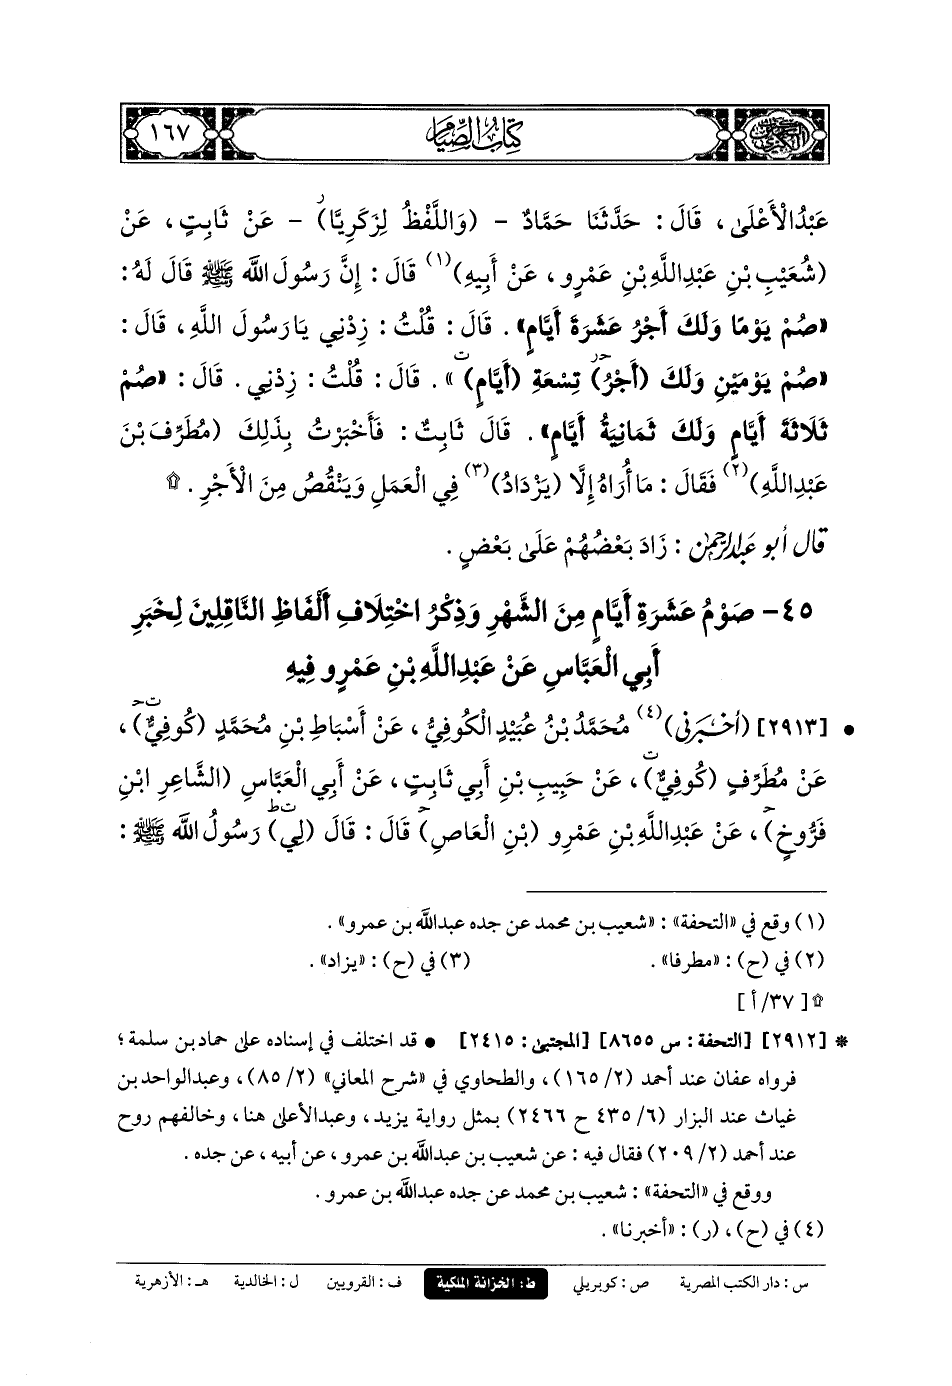 كتاب الصيام
١٦٧
عَبْدُالْأَعْلَىٰ، قَالَ: حَدَّثَنَا حَمَّادٌ - (وَاللَّفْظُ لِزَكَرِيَّا) - عَنْ ثَابِتٍ، عَنْ
(شُعَيْبِ بْنِ عَبْدِاللَّهِ بْنِ عَمْرٍو، عَنْ أَبِيهِ)(١) قَالَ: إِنَّ رَسُولَ اللَّه ﷺ قَالَ لَهُ:
«صُمْ يَوْمًا وَلَكَ أَجْرُ عَشَرَةِ أَيَّامٍ». قَالَ: قُلْتُ: زِدْنِي يَارَسُولَ اللَّهِ، قَالَ:
«صُمْ يَوْمَيْنِ وَلَكَ (أَجْرُ) تِسْعَةِ (أَيَّامٍ)». قَالَ: قُلْتُ: زِدْنِي. قَالَ: «صُمْ
ثَلَاثَةَ أَيَّامٍ وَلَكَ ثَمَانِيَةُ أَيَّامٍ». قَالَ ثَابِتٌ: فَأَخْبَرْتُ بِذَلِكَ (مُطَرِّفَ بْنَ
عَبْدِاللَّهِ)(٢) فَقَالَ: مَا أُرَاهُ إِلَّا (يَزْدَادُ)(٣) فِي الْعَمَلِ وَيَنْقُصُ مِنَ الْأَجْرِ. ۩
قال أبو عبدالرحمن: زَادَ بَعْضُهُمْ عَلَىٰ بَعْضٍ.
٤٥- صَوْمُ عَشَرَةِ أَيَّامٍ مِنَ الشَّهْرِ وَذِكْرُ اخْتِلَافِ أَلْفَاظِ النَّاقِلِينَ لِخَبَرِ
أَبِي الْعَبَّاسِ عَنْ عَبْدِاللَّهِ بْنِ عَمْرٍو فِيهِ
• [٢٩١٣] (أخبرني)(٤) مُحَمَّدُ بْنُ عُبَيْدٍ الْكُوفِيُّ، عَنْ أَسْبَاطِ بْنِ مُحَمَّدٍ (كُوفِيٌّ)،
عَنْ مُطَرِّفٍ (كُوفِيٌّ)، عَنْ حَبِيبِ بْنِ أَبِي ثَابِتٍ، عَنْ أَبِي الْعَبَّاسِ (الشَّاعِرِ ابْنِ
فَرُّوخٍ)، عَنْ عَبْدِاللَّهِ بْنِ عَمْرٍو (بْنِ الْعَاصِ) قَالَ: قَالَ (لِي) رَسُولُ اللَّه ﷺ:
(١) وقع في «التحفة»: «شعيب بن محمد عن جده عبداللَّه بن عمرو».
(٢) في (ح): «مطرفا». (٣) في (ح): «يزاد».
۩ [٣٧/أ]
* [٢٩١٢] [التحفة: س ٨٦٥٥] [المجتبى: ٢٤١٥] • قد اختلف في إسناده على حماد بن سلمة؛
فرواه عفان عند أحمد (٢/ ١٦٥)، والطحاوي في «شرح المعاني» (٢/ ٨٥)، وعبدالواحد بن
غياث عند البزار (٦/ ٤٣٥ ح ٢٤٦٦) بمثل رواية يزيد، وعبدالأعلى هنا، وخالفهم روح
عند أحمد (٢/ ٢٠٩) فقال فيه: عن شعيب بن عبداللَّه بن عمرو، عن أبيه، عن جده.
ووقع في «التحفة»: شعيب بن محمد عن جده عبداللَّه بن عمرو.
(٤) في (ح)، (ر): «أخبرنا».
س: دار الكتب المصرية ص: كوبريلي ط: الخزانة الملكية ف: القرويين ل: الخالدية هـ: الأزهرية